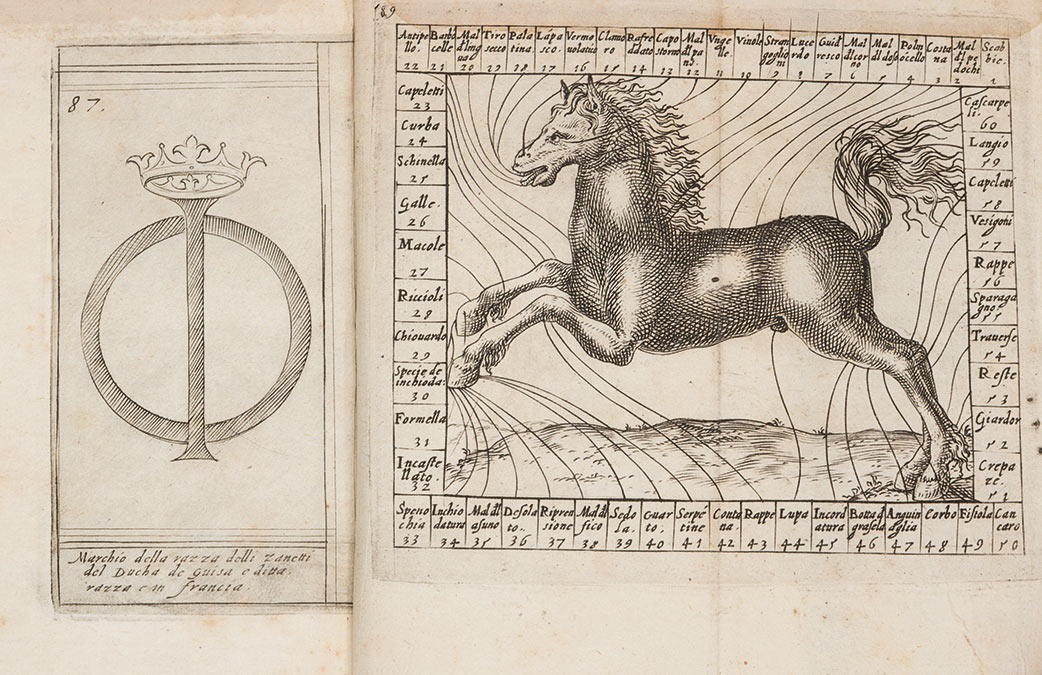 87.
Marchio della razza delli zanetti
del Ducha de Guisa e ditta
razza e in francia.
189
Antipe
llo.
22
Barbo
celle
21
Mal
dl ling
ua
20
Tiro
secco
19
Pala
tina.
18
Lapa
sco.
17
Vermo
uolatiuo
16
Clamo
ro
15
Rafre
ddato
14
Capo
storno
13
Mal
dl pa
12
Vnge
lle
11
Vinole
10
Stran
goglioni
9
Luce
rdo
8
Guid
resco
7
Mal
dl cor
no
6
Mal
dl doſ
5
Polm
oncello
4
Costa
na
3
Mal
dl pe
dochi
2
Scab
bie.
1
Capeletti
23
Curba
24
Schinella
25
Galle.
26
Macole
27
Riccioli
28
Chiouardo
29
Specie de
inchioda:
30
Formella
31
Incaste
llato.
32
Cascarpe
li.
60
Langio
59
Capeletti
58
Vesigoni
57
Rappe
56
Sparaga
gno.
55
Trauerse
54
Reste
53
Giardor
52
Crepa
ze.
51
Speno
chia
33
Inchio
datura
34
Mal dl
asuno
35
Desola
to.
36
Ripren
sione
37
Mal dl
fico
38
Sedo
la.
39
Quar
to.
40
Serpē
tine
41
Conta
na.
42
Rappe
43
Lupa
44
Incord
atura
45
Botta dl
grasela
46
Anguin
aglia
47
Corbo
48
Fistola
49
Can
caro
50